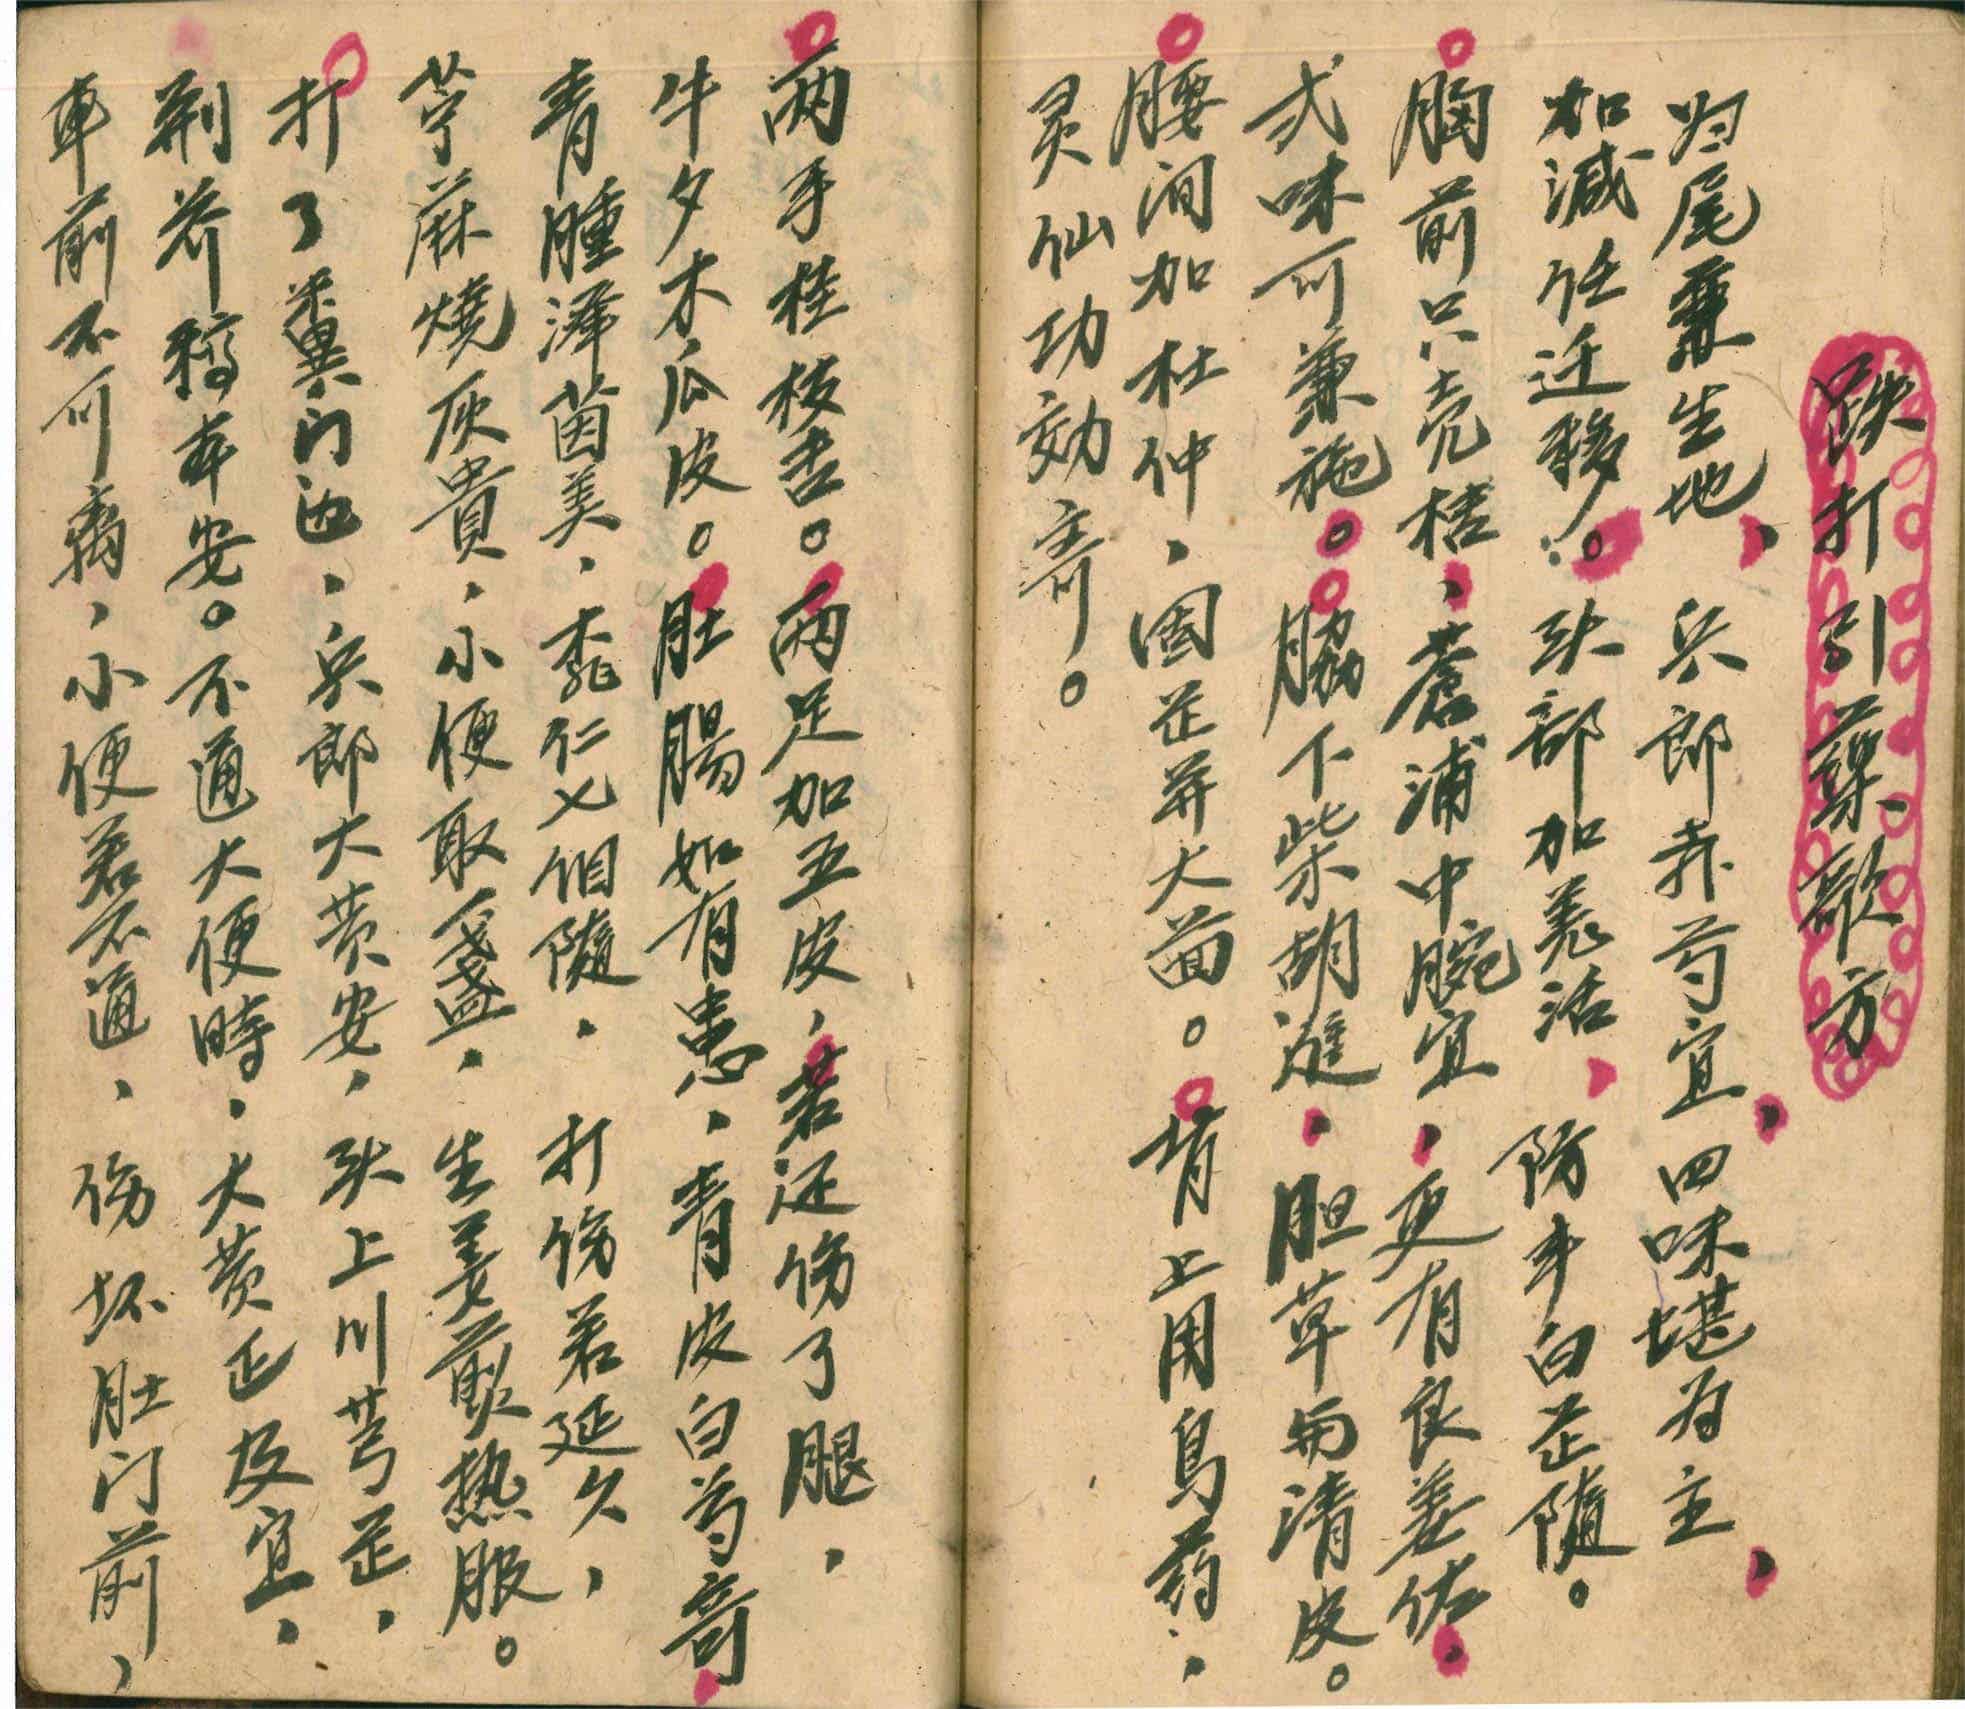 跌打引药歌方
归尾兼生地、兵郎赤芍宜、四味堪为主、
加减任迁移。头部加羌活、防丰白芷随。
胸前只壳桔、菖浦中腕宜、更有良姜佐、
弍味可兼施。脇下柴胡进、胆草兩清皮。
腰间加杜仲、固芷并大茴。背上用烏药、
灵仙功効奇。
两手桂枝吉。两足加五皮、若还伤了腿、
牛夕木瓜皮。肚腸如有患、青皮白芍奇
青腫泽茵美、桃仁七個隨、打伤若延久、
苧蔴燒灰貴、小便取盞、生姜煎热服。
打了粪门边、兵郎大黄安、头上川芎芷、
荆芥稿本安。不通大便時、大黄正及宜、
車前不可离、小便若不通、伤坏肚门前、